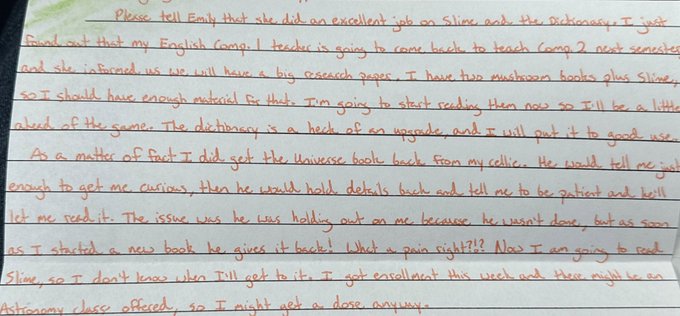 Please tell Emily that she did an excellent job on Slime and the Dictionary. I just
found out that my English Comp. 1 teacher is going to come back to teach Comp. 2 next semester
and she informed us we will have a big research paper. I have two mushroom books plus Slime,
so I should have enough material for that. I'm going to start reading them now so I'll be a little
ahead of the game. The dictionary is a heck of an upgrade, and I will put it to good use.
As a matter of fact I did get the Universe book back from my cellie. He would tell me just
enough to get me curious, then he would hold details back and tell me to be patient and he'll
let me read it. The issue was he was holding out on me because he wasn't done, but as soon
as I started a new book he gives it back! What a pain right?!? Now I am going to read
Slime, so I don't know when I'll get to it. I got enrollment this week and there might be an
Astronomy class offered, so I might get a dose anyway.